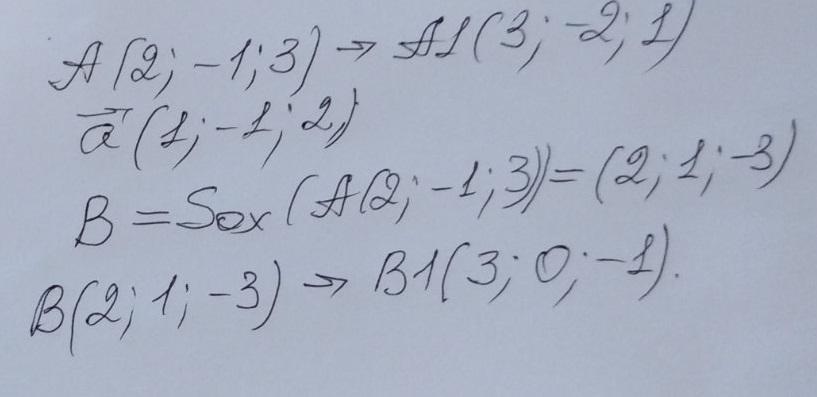 A(2; -1; 3) → A1(3; -2; 1)
a⃗ (1; -1; 2)
B = Sox (A(2; -1; 3)) = (2; 1; -3)
B(2; 1; -3) → B1(3; 0; -1).